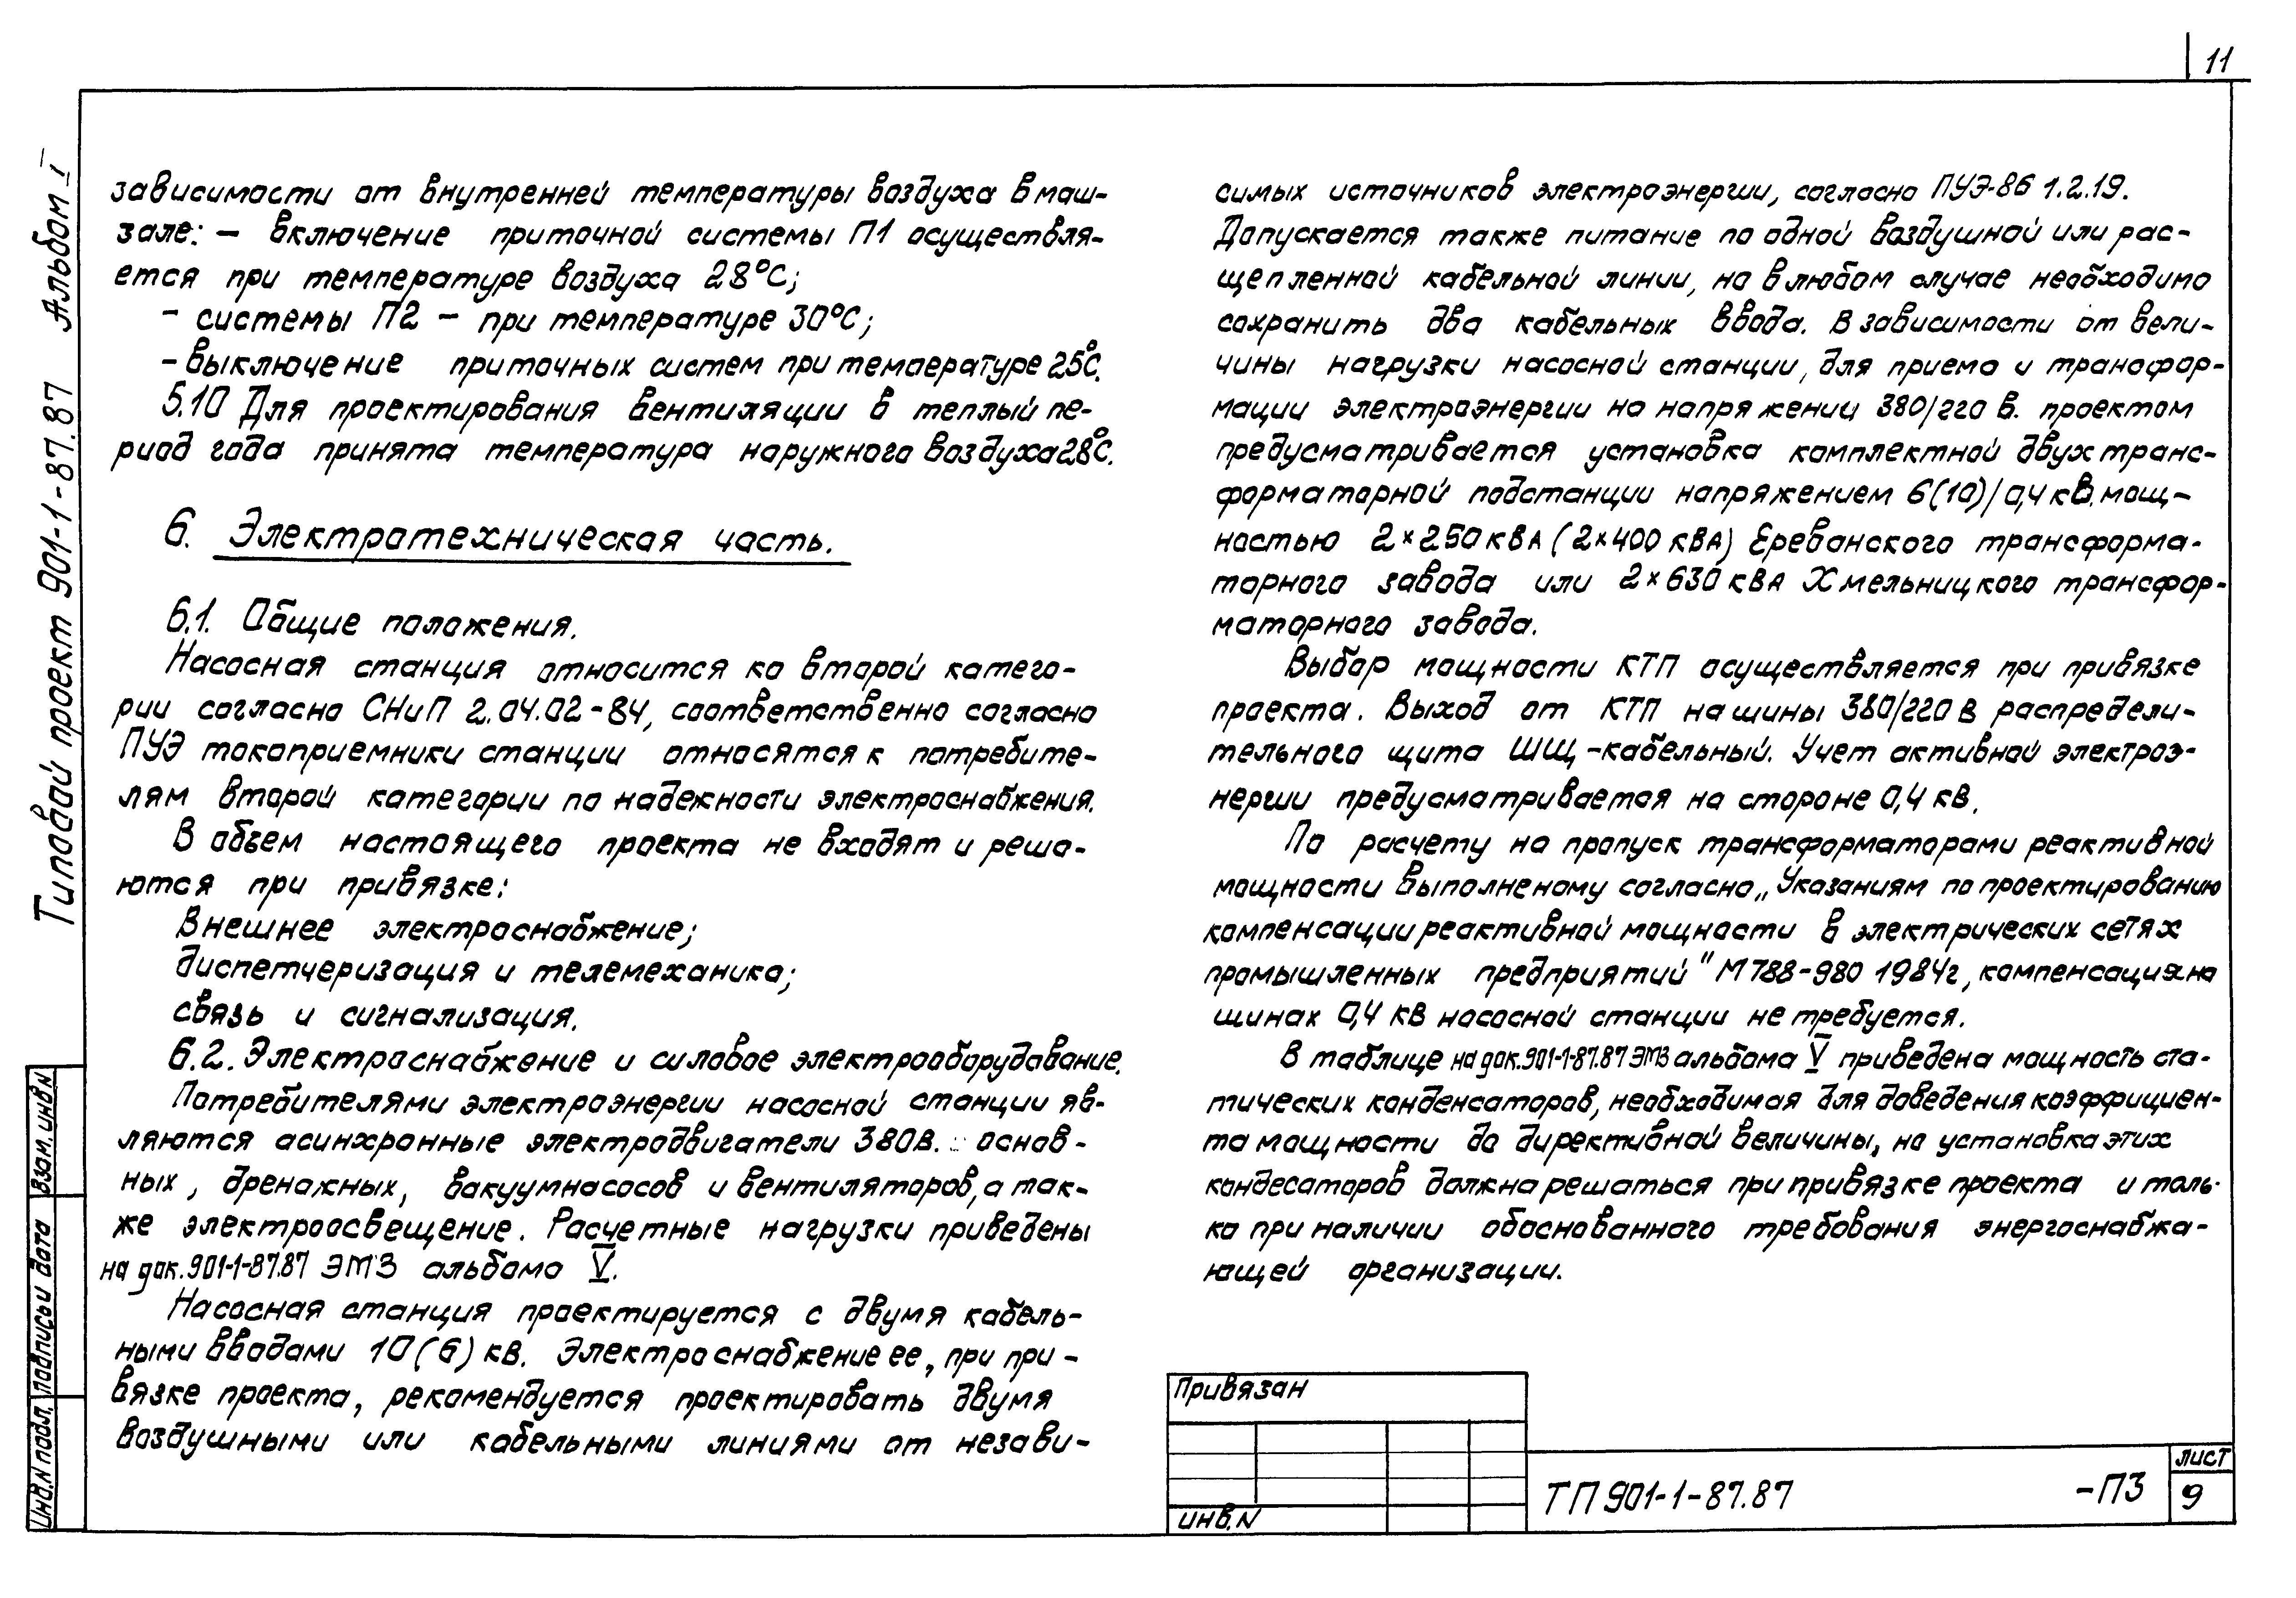 11
Типовой проект 901-1-87.87 Альбом I
зависимости от внутренней температуры воздуха в маш-
зале: – включение приточной системы П1 осуществля-
ется при температуре воздуха 28°С;
– системы П2 – при температуре 30°С;
– выключение приточных систем при температуре 25°С.
5.10 Для проектирования вентиляции в теплый пе-
риод года принята температура наружного воздуха 28°С.
6. Электротехническая часть.
6.1. Общие положения.
Насосная станция относится ко второй катего-
рии согласно СНиП 2.04.02-84, соответственно согласно
ПУЭ токоприемники станции относятся к потребите-
лям второй категории по надежности электроснабжения.
В объем настоящего проекта не входят и реша-
ются при привязке:
Внешнее электроснабжение;
диспетчеризация и телемеханика;
связь и сигнализация.
6.2. Электроснабжение и силовое электрооборудование.
Потребителями электроэнергии насосной станции яв-
ляются асинхронные электродвигатели 380в. основ-
ных, дренажных, вакуумнасосов и вентиляторов, а так-
же электроосвещение. Расчетные нагрузки приведены
на док.901-1-87.87 ЭМЗ альбома V.
Насосная станция проектируется с двумя кабель-
ными вводами 10(6) кв. Электроснабжение ее, при при-
вязке проекта, рекомендуется проектировать двумя
воздушными или кабельными линиями от незави-
симых источников электроэнергии, согласно ПУЭ-86 1.2.19.
Допускается также питание по одной воздушной или рас-
щепленной кабельной линии, но в любом случае необходимо
сохранить два кабельных ввода. В зависимости от вели-
чины нагрузки насосной станции, для приема и трансфор-
мации электроэнергии на напряжении 380/220 в. проектом
предусматривается установка комплектной двухтранс-
форматорной подстанции напряжением 6(10)/0,4 кв. мощ-
ностью 2×250 ква (2×400 ква) Ереванского трансформа-
торного завода или 2×630 ква Хмельницкого трансфор-
маторного завода.
Выбор мощности КТП осуществляется при привязке
проекта. Выход от КТП на шины 380/220 в распредели-
тельного щита ШЩ – кабельный. Учет активной электроэ-
нергии предусматривается на стороне 0,4 кв.
По расчету на пропуск трансформаторами реактивной
мощности выполненому согласно „Указаниям по проектированию
компенсации реактивной мощности в электрических сетях
промышленных предприятий" М788-980 1984г, компенсация на
шинах 0,4 кв насосной станции не требуется.
В таблице на док.901-1-87.87 ЭМЗ альбома V приведена мощность ста-
тических конденсаторов, необходимая для доведения коэффициен-
та мощности до директивной величины, но установка этих
кондесаторов должна решаться при привязке проекта и толь-
ко при наличии обоснованного требования энергоснабжа-
ющей организации.
Взам. инв N
Подпись и дата
Инв. N подл.
Привязан
инв. N
ТП 901-1-87.87 -ПЗ
лист
9